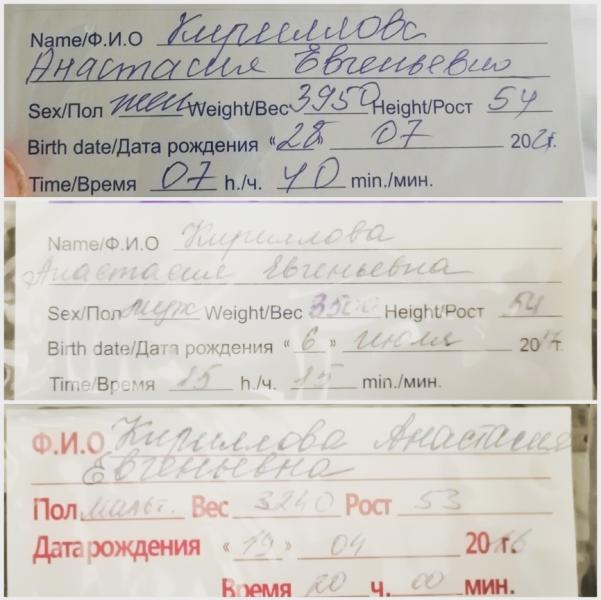 Name/Ф.И.О Кириллова
Анастасия Евгеньевна
Sex/Пол жен Weight/Вес 3950 Height/Рост 54
Birth date/Дата рождения "28" 07 202 г.
Time/Время 07 h./ч. 40 min./мин.
Name/Ф.И.О Кириллова
Анастасия Евгеньевна
Sex/Пол муж Weight/Вес 3500 Height/Рост 54
Birth date/Дата рождения "6" июля 2017г.
Time/Время 15 h./ч. 15 min./мин.
Ф.И.О Кириллова Анастасия
Евгеньевна
Пол мальч. Вес 3240 Рост 53
Дата рождения "19" 04 2016г.
Время 20 ч. 00 мин.